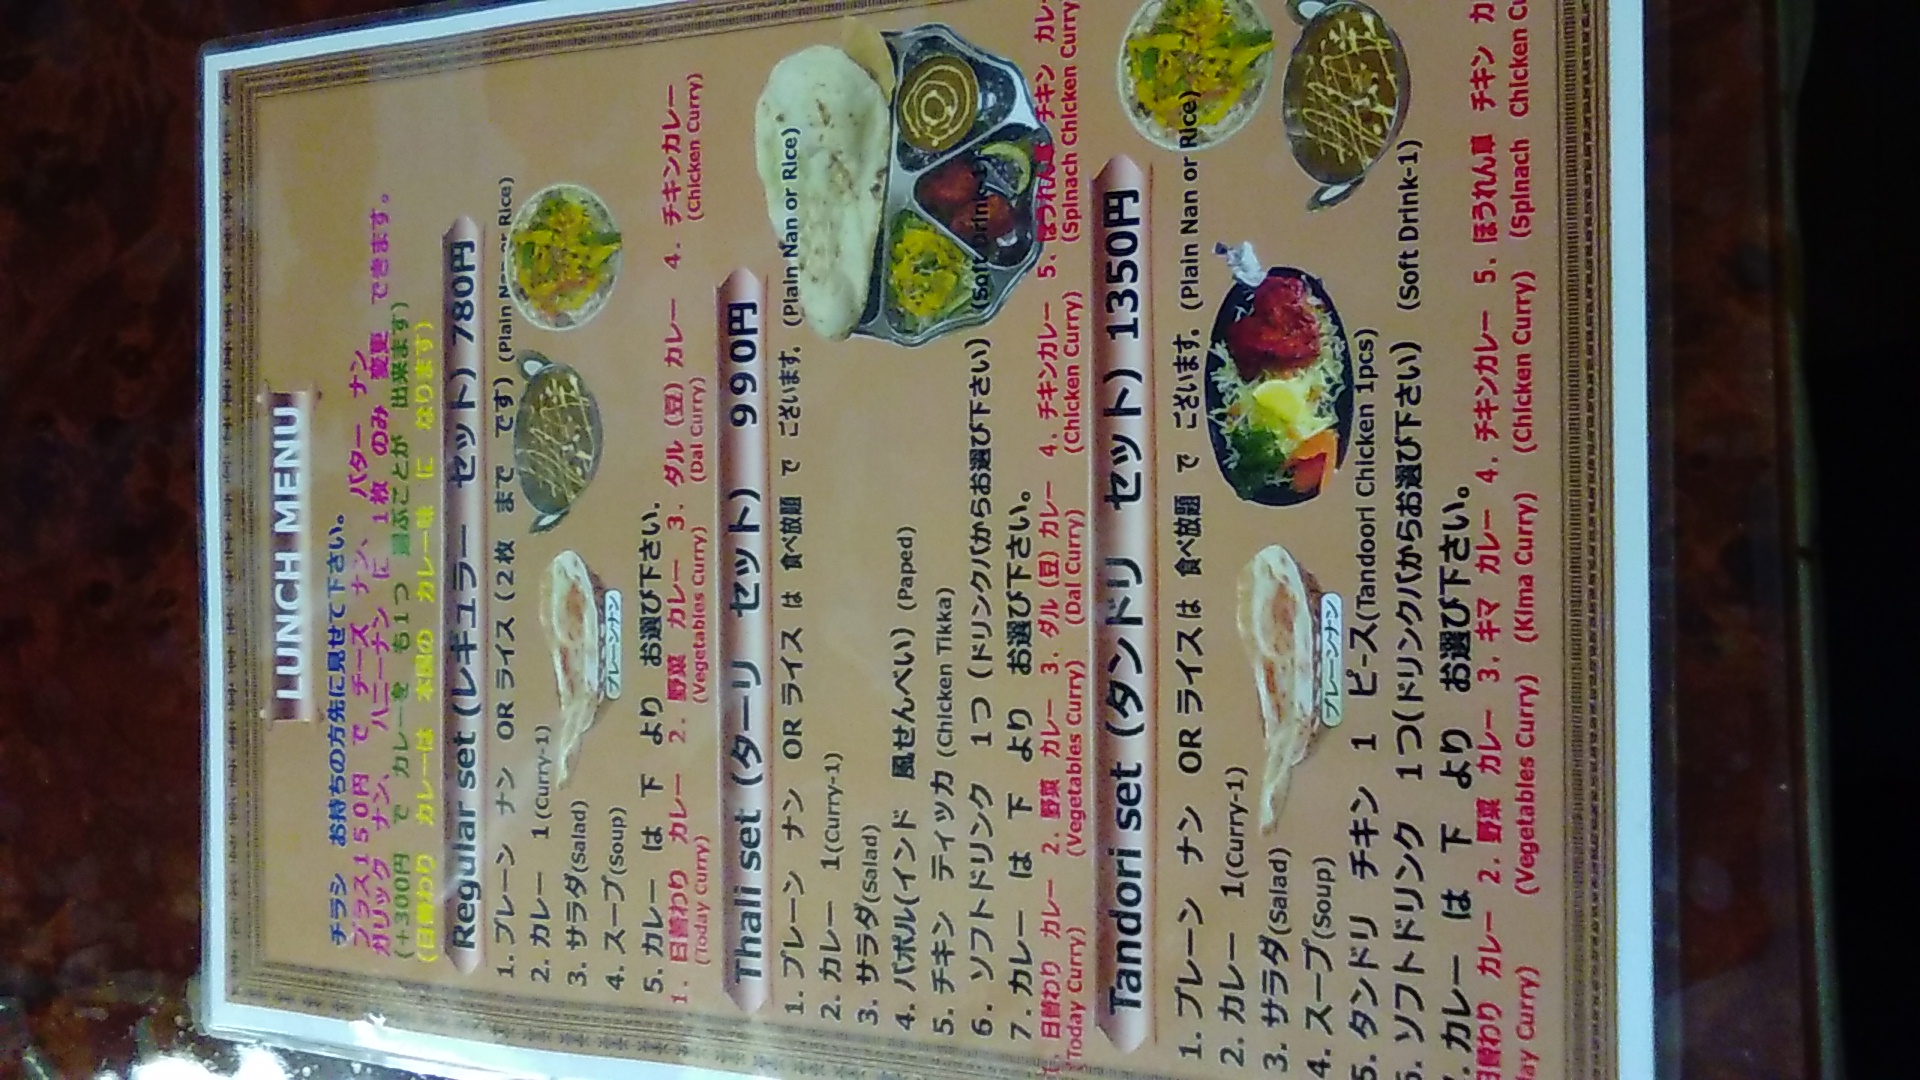 LUNCH MENU
チラシ お持ちの方先に見せて下さい。
プラス150円 で チーズ ナン、 バター ナン
ガリック ナン、 ハニーナン に 1枚 のみ 変更 できます。
(+300円 で カレーを も1つ 選ぶことが 出来ます)
(日替わり カレーは 本国の カレー味 に なります)
Regular set (レギュラー セット) 780円
1. プレーン ナン OR ライス (2枚 まで です) (Plain Nan or Rice)
2. カレー 1(Curry-1)
3. サラダ(Salad)
4. スープ(Soup)
プレーンナン
5. カレー は 下 より お選び下さい.
1. 日替わり カレー 2. 野菜 カレー 3. ダル (豆) カレー 4. チキンカレー
(Today Curry) (Vegetables Curry) (Dal Curry) (Chicken Curry)
Thali set (ターリ セット) 990円
1. プレーン ナン OR ライス は 食べ放題 で ございます. (Plain Nan or Rice)
2. カレー 1(Curry-1)
3. サラダ(Salad)
4. パポル(インド 風せんべい) (Paped)
5. チキン ティッカ (Chicken Tikka)
6. ソフトドリンク 1つ (ドリンクバからお選び下さい) (Soft Drink-1)
7. カレー は 下 より お選び下さい。
1. 日替わり カレー 2. 野菜 カレー 3. ダル (豆) カレー 4. チキンカレー 5. ほうれん草 チキン カレ
(Today Curry) (Vegetables Curry) (Dal Curry) (Chicken Curry) (Spinach Chicken Curry
Tandori set (タンドリ セット) 1350円
1. プレーン ナン OR ライスは 食べ放題 で ございます. (Plain Nan or Rice)
2. カレー 1(Curry-1)
3. サラダ(Salad)
4. スープ(Soup)
プレーンナン
5. タンドリ チキン 1 ピース(Tandoori Chicken 1pcs)
6. ソフトドリンク 1つ(ドリンクバからお選び下さい) (Soft Drink-1)
7. カレー は 下 より お選び下さい。
日替わり カレー 2. 野菜 カレー 3. キマ カレー 4. チキンカレー 5. ほうれん草 チキン カ
ay Curry) (Vegetables Curry) (Kima Curry) (Chicken Curry) (Spinach Chicken Cu